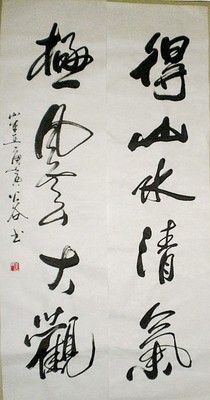 得山水清氣
極風雲大觀